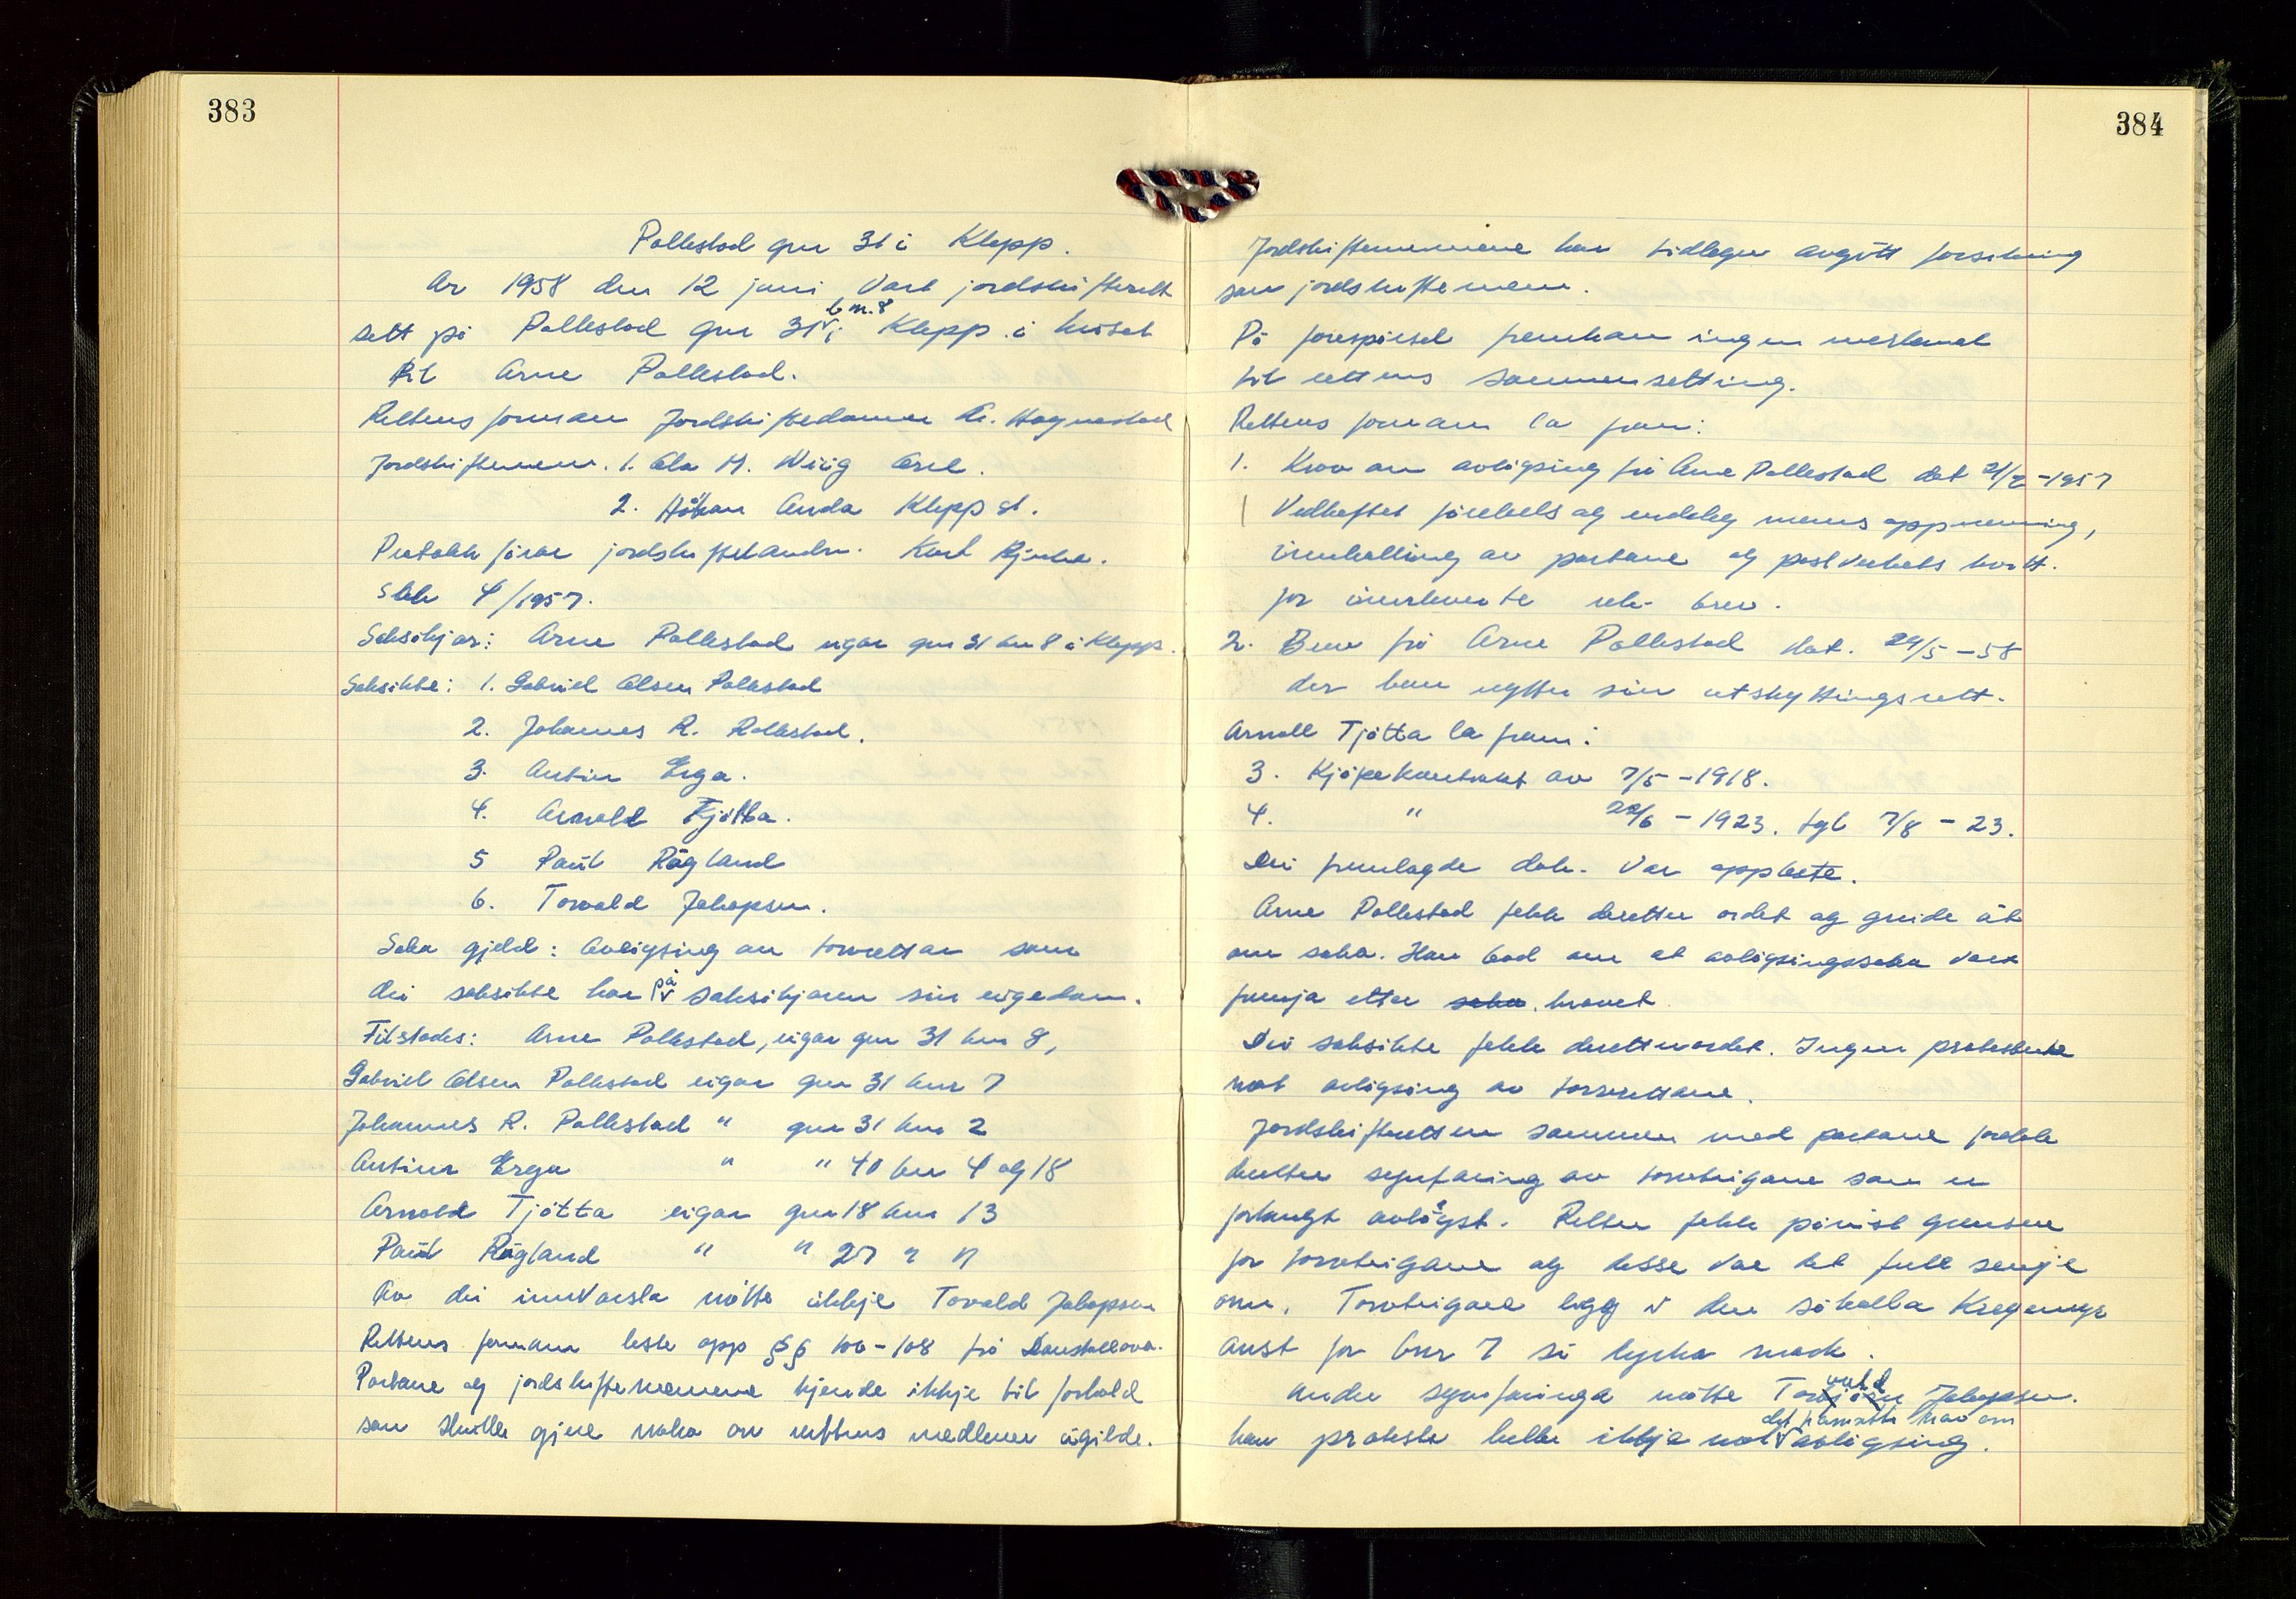 383
Pollestad gnr 31 i Klepp.
År 1958 den 12 juni vart jordskifterett
sett på Pollestad gnr 31 bnr. 8 i Klepp i huset
til Arne Pollestad.
Rettens formann Jordskiftedommer A. Hognestad
Jordskiftemenn. 1. Ola M. Wiig Orre.
2. Håkon Anda Klepp st.
Protokollførar jordskiftekandn. Karl
Sak 4/1957.
Saksøkjar: Arne Pollestad eigar gnr 31 bnr 8 i Klepp.
Saksøkte: 1. Gabriel Olsen Pollestad
2. Johannes R. Pollestad.
3. Antin Erga.
4. Arnold Tjøtta.
5 Paul Rægland
6. Torvald Jakopsen.
Saka gjeld: Avløysing av torvrettar som
dei saksøkte har på saksøkjaren sin eigedom.
Tilstades: Arne Pollestad, eigar gnr 31 bnr 8,
Gabriel Olsen Pollestad eigar gnr 31 bnr 7
Johannes R. Pollestad " gnr 31 bnr 2
Antin Erga " " 40 bnr 4 og 18
Arnold Tjøtta eigar gnr 18 bnr 13
Paul Rægland " " 27 "
Av dei innvarsla møtte ikkje Torvald Jakopsen
Rettens formann leste opp §§ 106-108 frå Domstollova.
Partane og jordskiftemennene kjende ikkje til forhold
som skulle gjere noko av rettens medlemer ugilde.
384
Jordskiftemennene har tidlegare avgitt forsikring
som jordskiftemenn.
På forespørsel framkom ingen merknad
til rettens sammensetting.
Rettens formann la fram:
1. Krav om avløysing frå Arne Pollestad dat 21/2-1957
Vedheftet førebels og endeleg menns oppnemning,
innkalling av partane og postverkets kvitt.
for innleverte rek. brev.
2. Brev frå Arne Pollestad dat. 29/5-58
der han nyttar sin utskyttingsrett.
Arnold Tjøtta la fram:
3. Kjøpekontrakt av 7/5-1918.
4. " 22/6-1923. tgl 7/8-23.
Dei framlagde dok. var oppleste.
Arne Pollestad fekk deretter ordet og greide ut
om saka. Han bad om at avløysingssaka vart
fremja etter saka kravet.
Dei saksøkte fekk deretter ordet. Ingen protesterte
mot avløysing av torvrettane.
Jordskifteretten sammen med partane foretok
deretter synfaring av torvteigane som er
forlangt avløyst. Retten fekk påvist grensene
for torvteigane og desse var det full semje
om. Torvteigane ligg i den såkalla
aust for bnr 7 si dyrka mark.
Under synfaringa møtte Torvald Jakopsen.
han protesterte heller ikkje mot det framsatte krav om avløysing.